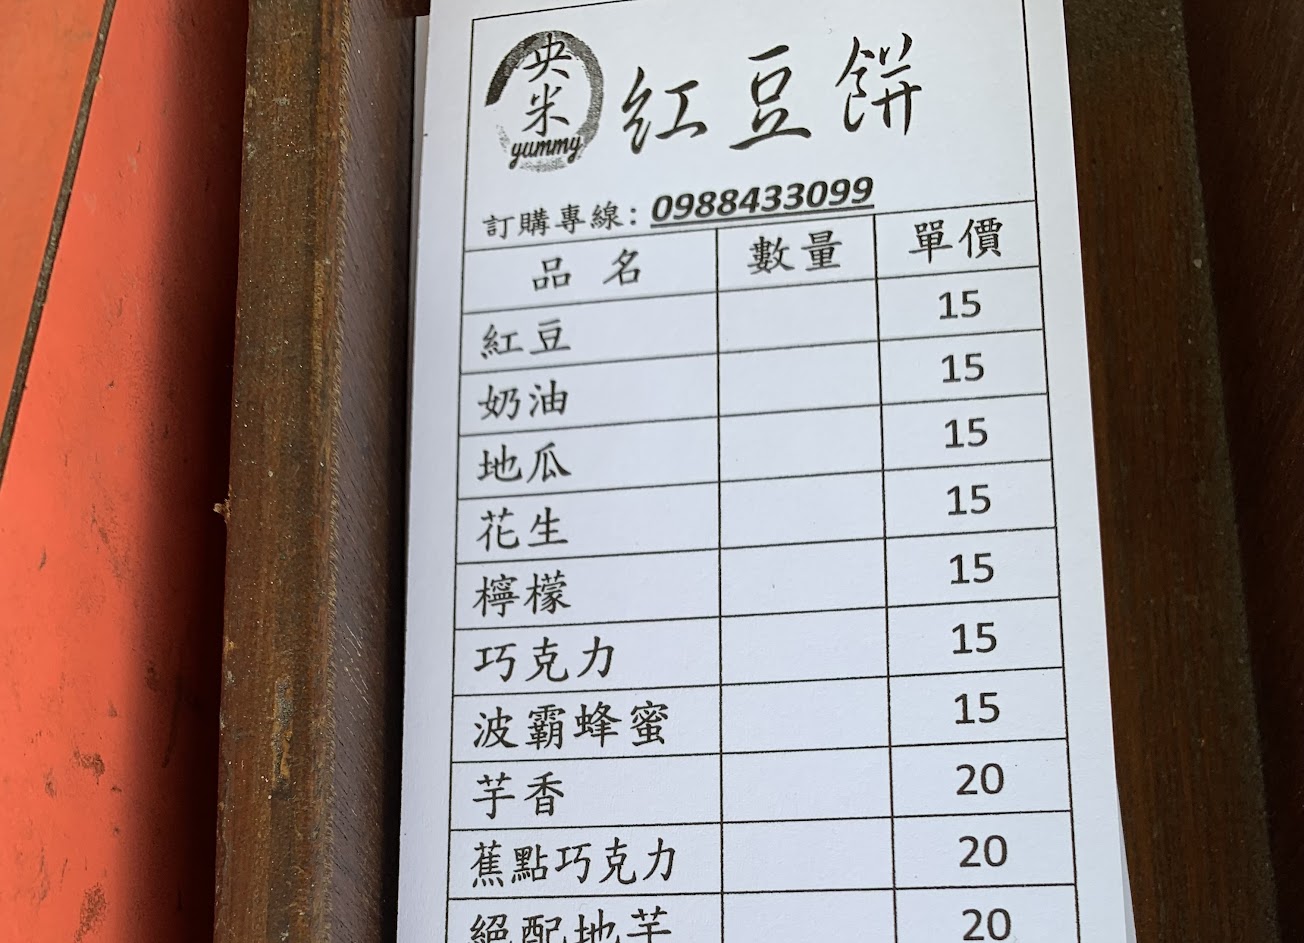 央米
yummy
紅豆餅
訂購專線: 0988433099
品名 數量 單價
紅豆 15
奶油 15
地瓜 15
花生 15
檸檬 15
巧克力 15
波霸蜂蜜 15
芋香 20
蕉點巧克力 20
絕配地芋 20